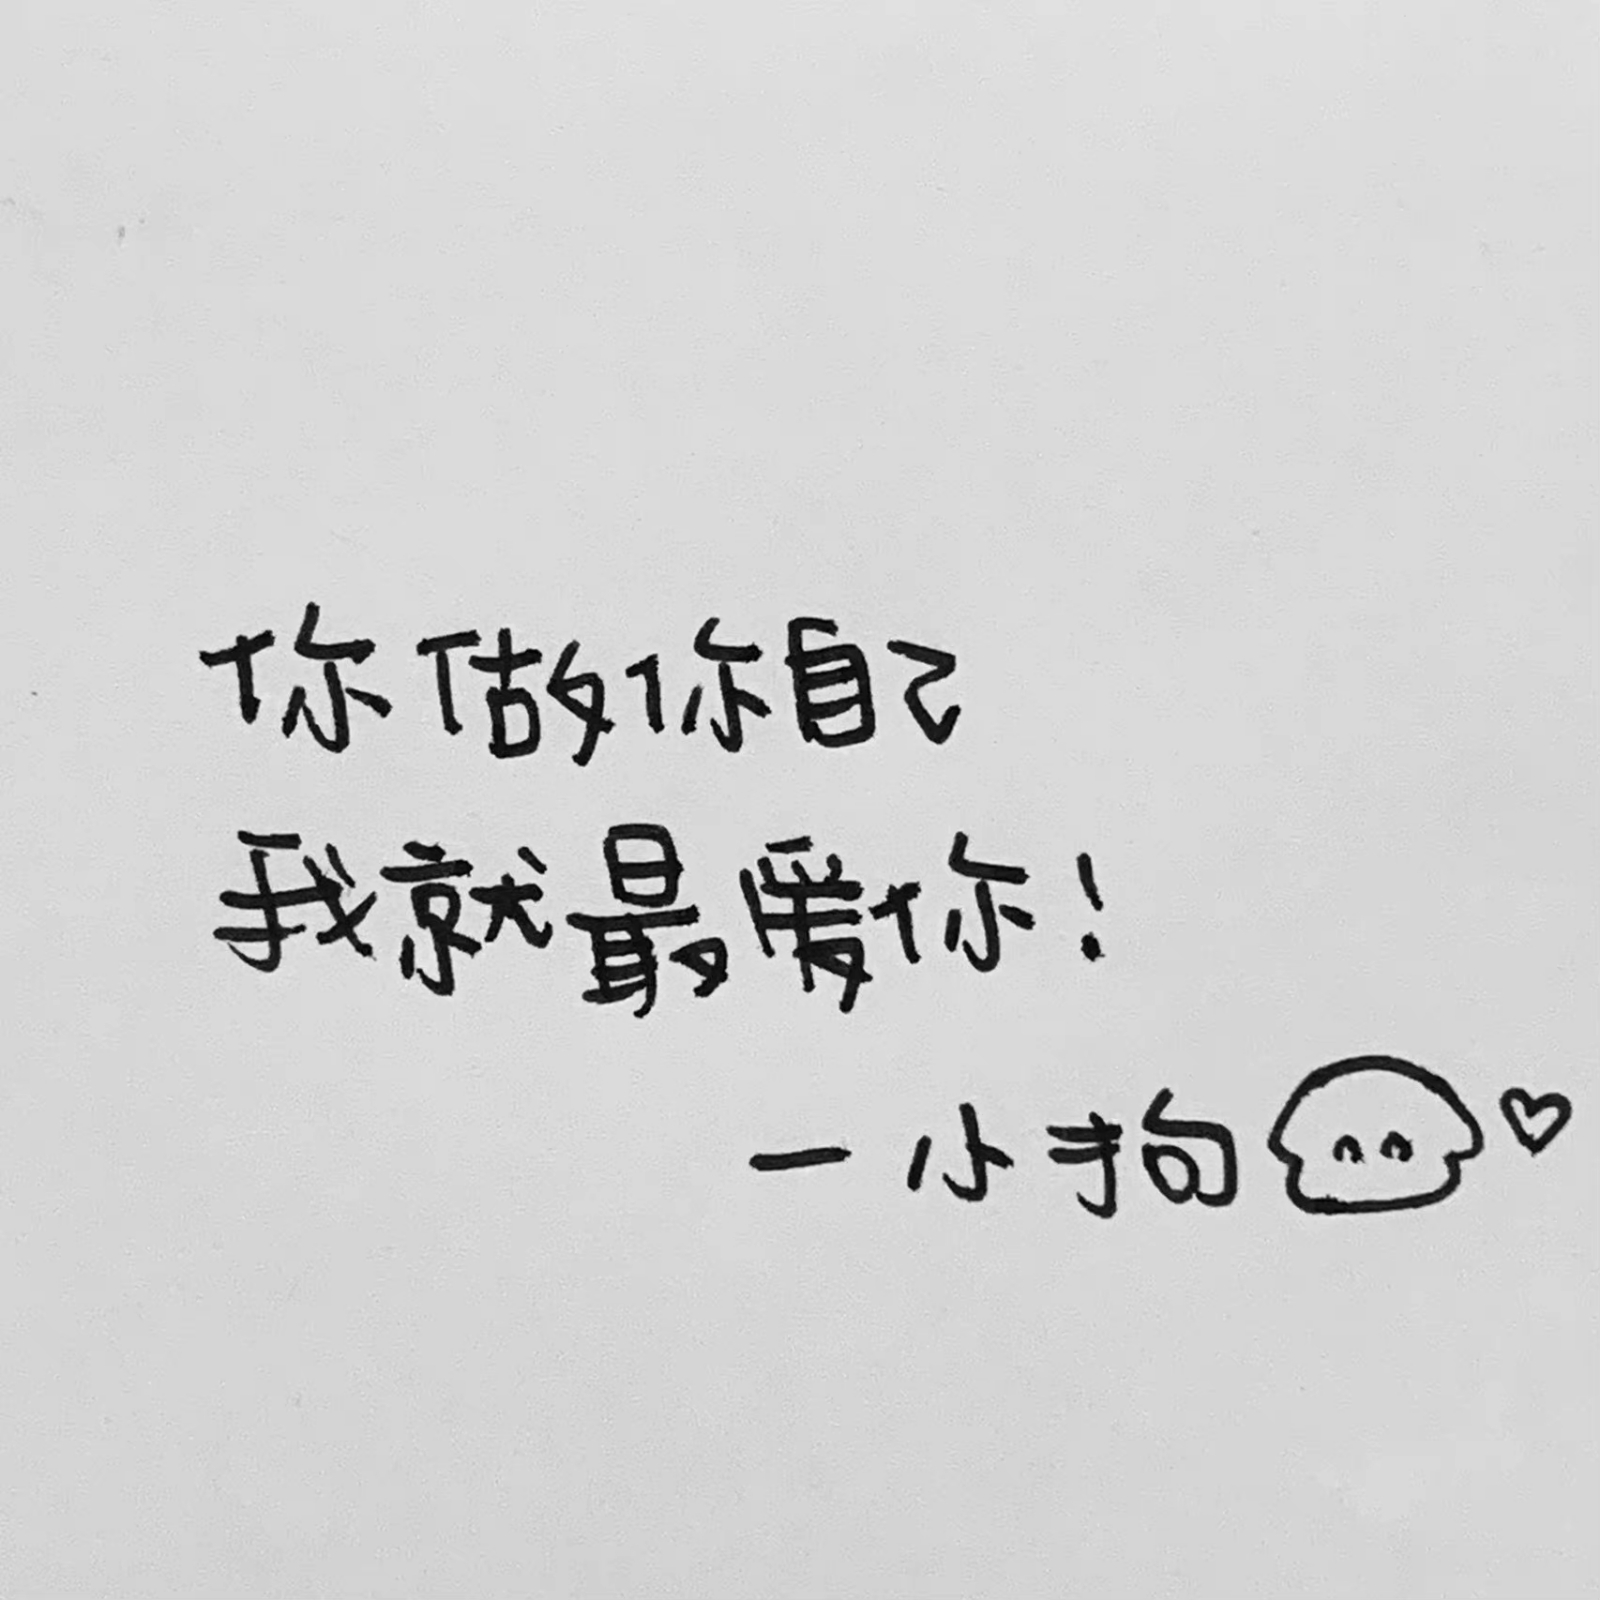 你做你自己
我就最爱你！
—小狗